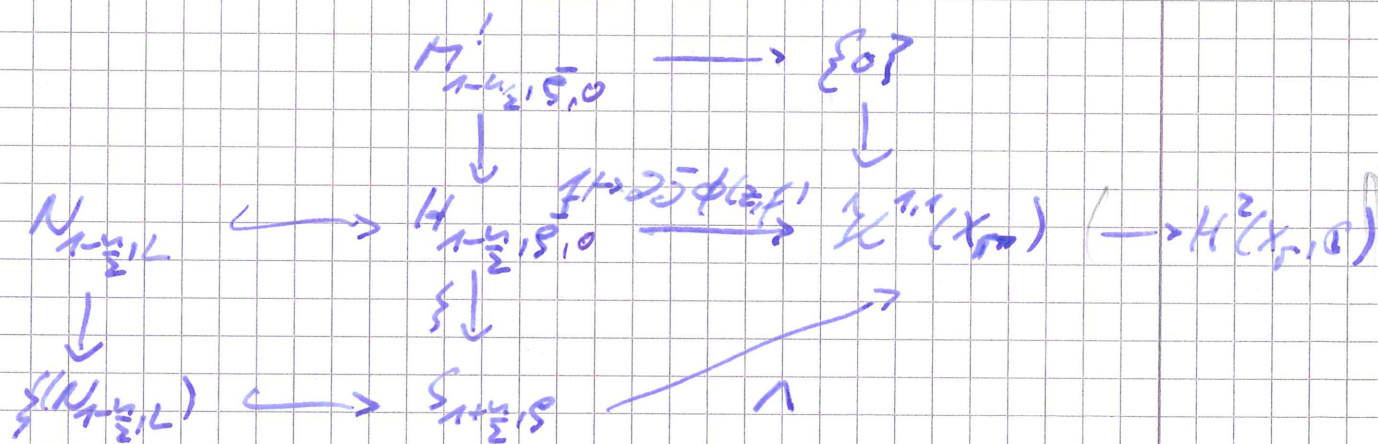 M^!_{1-n/2, ρ̄, 0} → {0}
N_{1-n/2, L} ↪ H_{1-n/2, ρ̄, 0} f ↦ ∂∂̄ϕ(z,f) → ℋ^{1,1}(X_Γ) (→ H²(X_Γ, ℂ))
ξ
ξ(N_{1-n/2, L}) ↪ S_{1+n/2, ρ} Λ